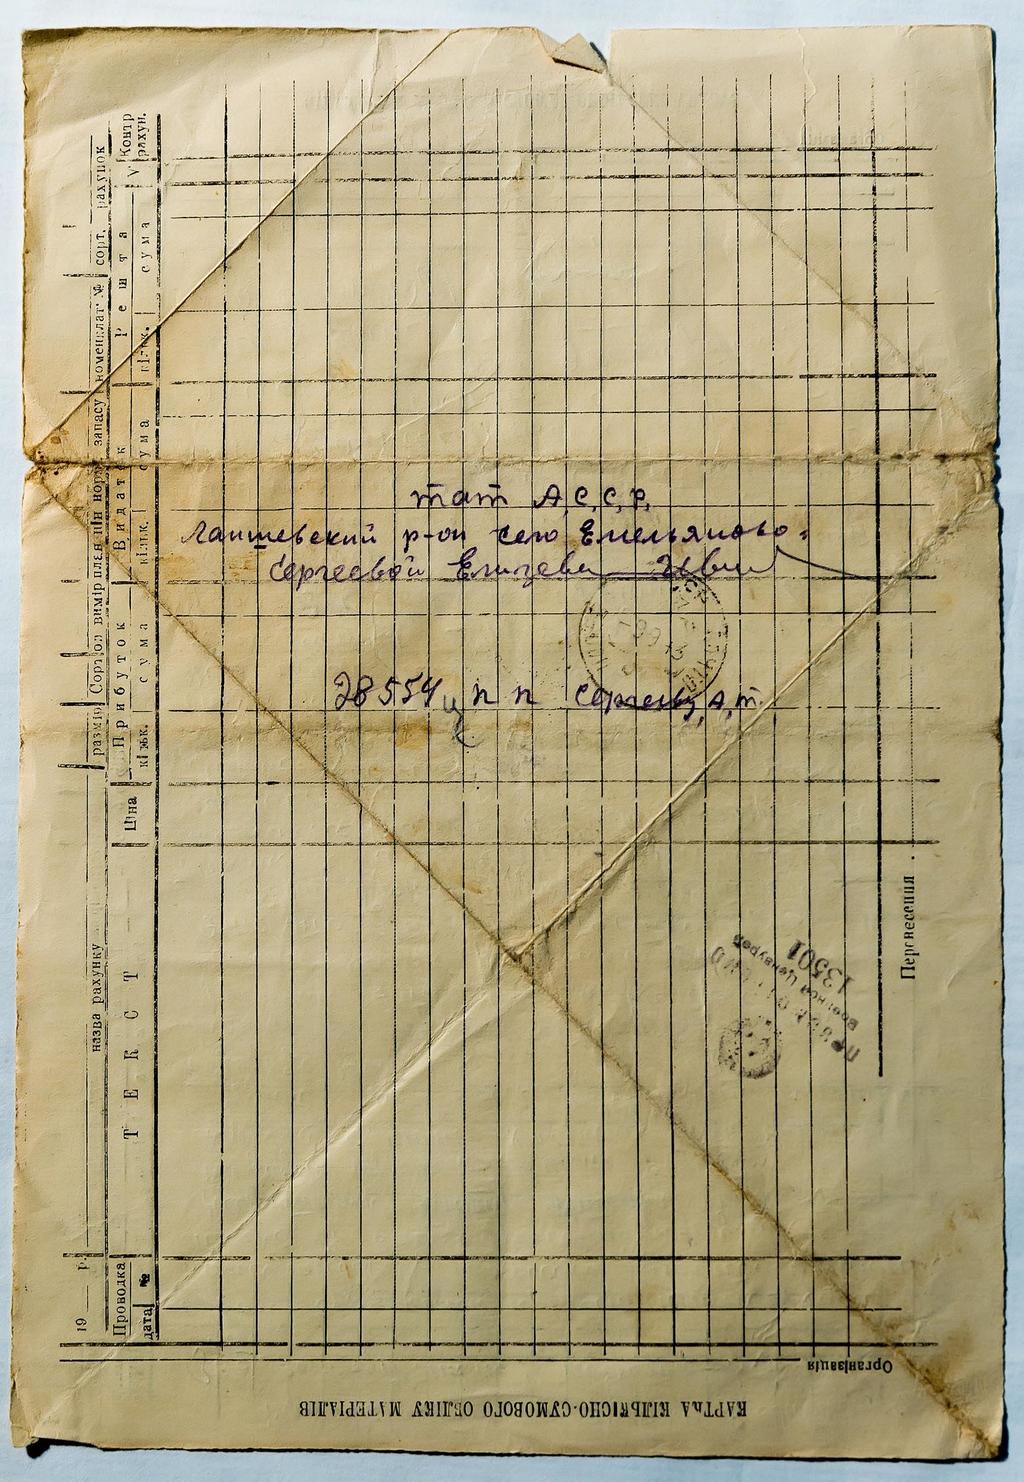 тат А,С,С,Р,
Лаишевский р-он село Емельяново-
Сергеевой Елизеве
28554 ц п п Сергеев, А, Т.
КАРТКА КІЛЬКІСНО-СУМОВОГО ОБЛІКУ МАТЕРІАЛІВ
Організація
19 р
назва рахунку
розмір
Сорт
од вимір
норм запасу
номенклат. №
сорт. рахунок
Проводка
дата
№
ТЕКСТ
Ціна
Прибуток
кільк.
сума
Видаток
кільк.
сума
Решта
кільк.
сума
V
Контр рахун.
Перенесення
Военной Цензурой
13501